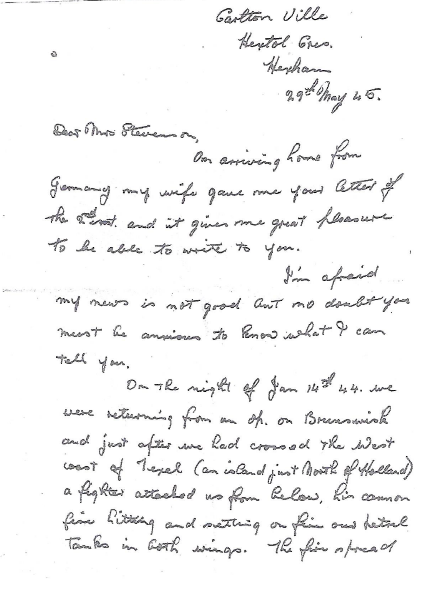 Carlton Ville
Hextol Cres.
Hexham
29th May 45.
Dear Mrs Stevenson,
On arriving home from
Germany my wife gave me your letter of
the 2nd inst. and it gives me great pleasure
to be able to write to you.
I'm afraid
my news is not good but no doubt you
must be anxious to know what I can
tell you.
On the night of Jan 14th 44. we
were returning from an op. on Brunswick
and just after we had crossed the West
coast of Texel (an island just North of Holland)
a fighter attacked us from below, his cannon
fire hitting and setting on fire our petrol
tanks in both wings. The fire spread